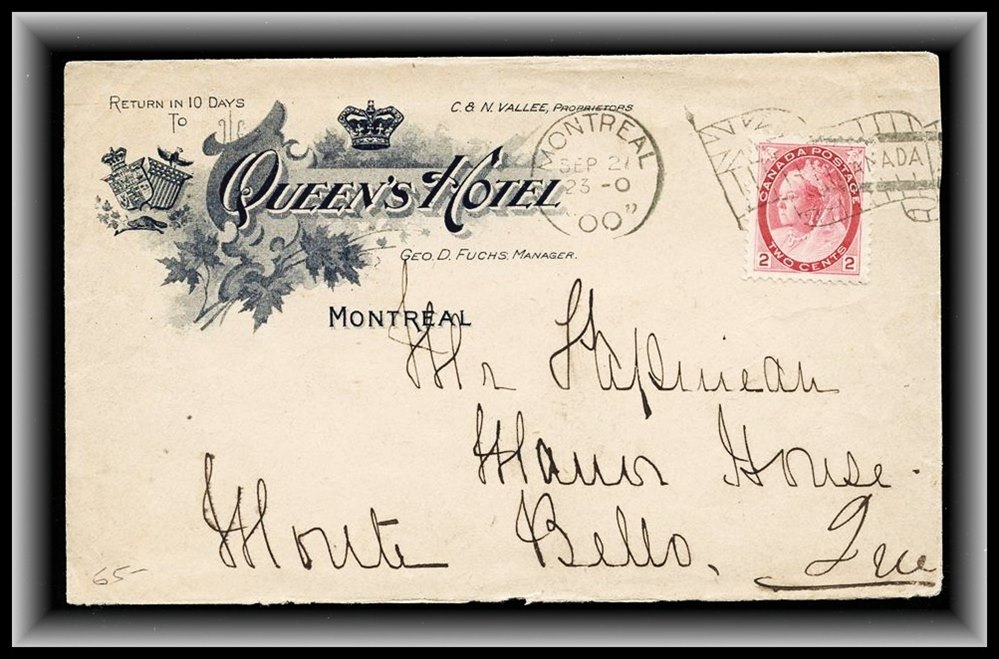 RETURN IN 10 DAYS
TO
C. & N. VALLEE, PROPRIETORS
QUEEN'S HOTEL
GEO. D. FUCHS, MANAGER.
MONTREAL
MONTREAL
SEP 21
23-0
00"
CANADA
CANADA POSTAGE
2 TWO CENTS 2
Mr Papineau
Manor House.
Monte Bello, Que
65-